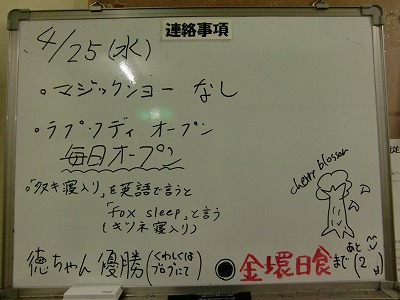 連絡事項
4/25(水)
。マジックショー なし
。ラブ・フディ オープン
毎日オープン
。「タヌキ寝入り」を英語で言うと
「fox sleep」と言う
(キツネ寝入り)
cherry blossom
徳ちゃん 優勝(くわしくはブログにて)
●金環日食まで(あと2 日)